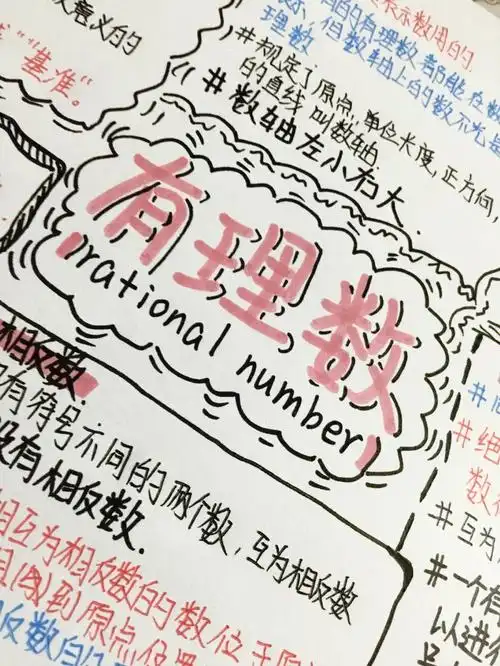 表示数用的.
意义的
的有理数都能在
但数轴上的数不光是
理数
"基准。"
#规定了原点,单位长度,正方向
的直线叫数轴.
#数轴左小右大.
有理数
rational number
相反数
有符号不同的两个数,互为相反数
没有相反数.
互为相反数的数位于原
到原点位置
反数的
#绝
数
#互为
#一个有
以进